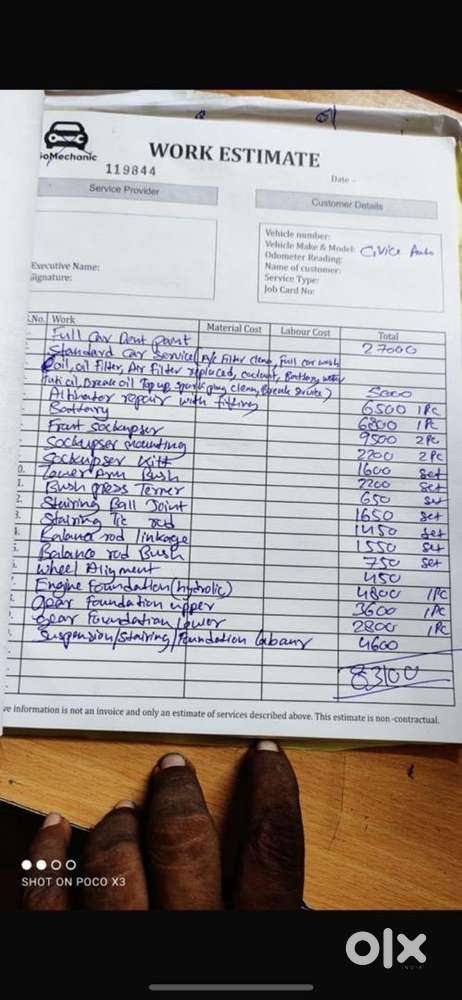 ioMechanic
119844
WORK ESTIMATE
Date –
Service Provider
Customer Details
Executive Name:
Signature:
Vehicle number:
Vehicle Make & Model: Civice Auto
Odometer Reading:
Name of customer:
Service Type:
Job Card No:
S.No. Work Material Cost Labour Cost Total
Full Car Dent Paint 27000
Standard Car Service (A/c Filter clean, Full car wash
oil, oil Filter, Air Filter replaced, coolant, Battery water
oil, Break oil Top up, spark plug clean, Break Service) 5000
Altinator repair with fitting 6500 1PC
Battary 6800 1PC
Frunt Sockupser 9500 2PC
Sockupser mounting 2200 2PC
Sockupser Kitt 1600 set
0. Lower Arm Bush 2200 set
1. Bush press Terner 650 set
2. Stairing Ball Joint 1650 set
3. Stairing Tie rod 1450 set
Balance rod linkage 1550 set
Balance rod Bush 750 set
Wheel Aliynment 450
Engine Foundation (hydrolic) 4800 1PC
Gear Foundation upper 3600 1PC
Gear Foundation lower 2800 1PC
Suspension/Stairing/Foundation labour 4600
83100
ve information is not an invoice and only an estimate of services described above. This estimate is non-contractual.
SHOT ON POCO X3
olx
INDIA